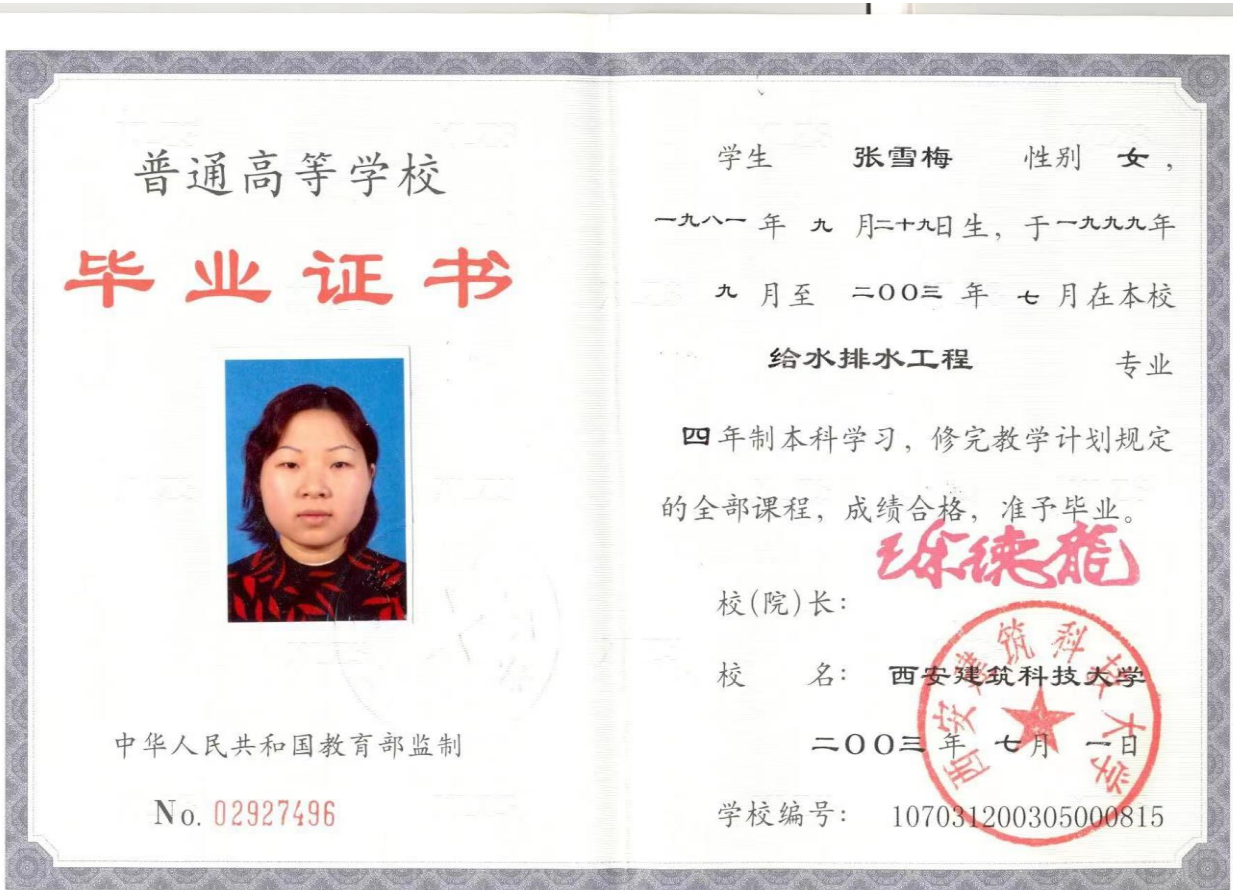 普通高等学校
毕业证书
中华人民共和国教育部监制
No. 02927496
学生 张雪梅 性别 女,
一九八一 年 九 月二十九日生, 于一九九九年
九 月至 二〇〇三 年 七 月在本校
给水排水工程 专业
四年制本科学习, 修完教学计划规定
的全部课程, 成绩合格, 准予毕业。
徐德龙
校(院)长:
校 名: 西安建筑科技大学
二〇〇三 年 七月 一日
学校编号: 107031200305000815
西安建筑科技大学